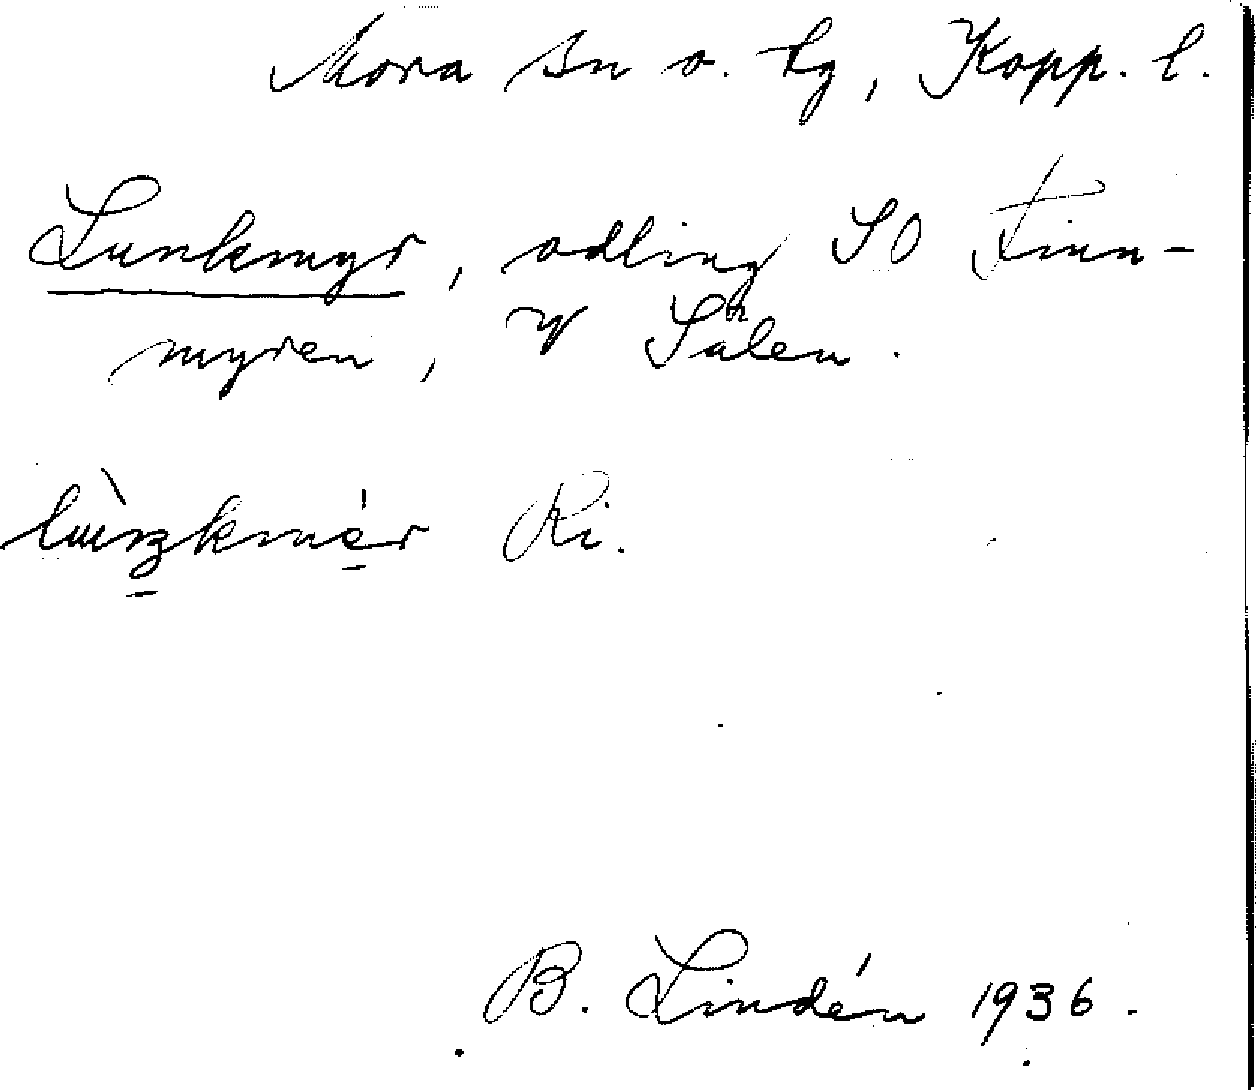 Mora sn o. tg, Kopp. l.
Lunkmyr, odling SO Finn-
myren, V Sälen.
Ri.
B. Lindén 1936.